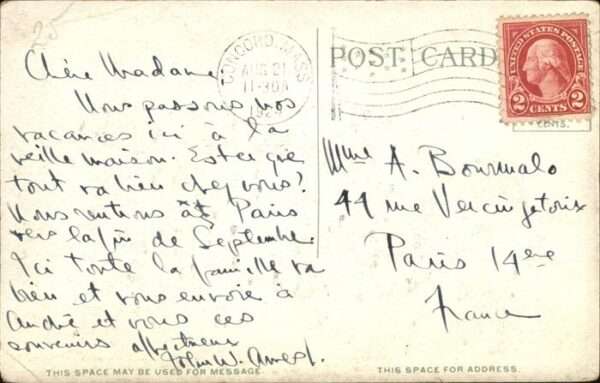 25
Chère Madame,
Nous passons nos
vacances ici à la
vieille maison. Est ce que
tout va bien chez vous?
Nous rentrons à Paris
vers la fin de Septembre.
Ici toute la famille va
bien et vous envoie à
André et vous ces
souvenirs affectueux
John W. Ames Jr.
THIS SPACE MAY BE USED FOR MESSAGE.
CONCORD, MASS.
AUG 21
11-30A
POST CARD
UNITED STATES POSTAGE
2 CENTS 2
CENTS.
Mme A. Bourmalo
44 rue Vercingetorix
Paris 14eme
France
THIS SPACE FOR ADDRESS.